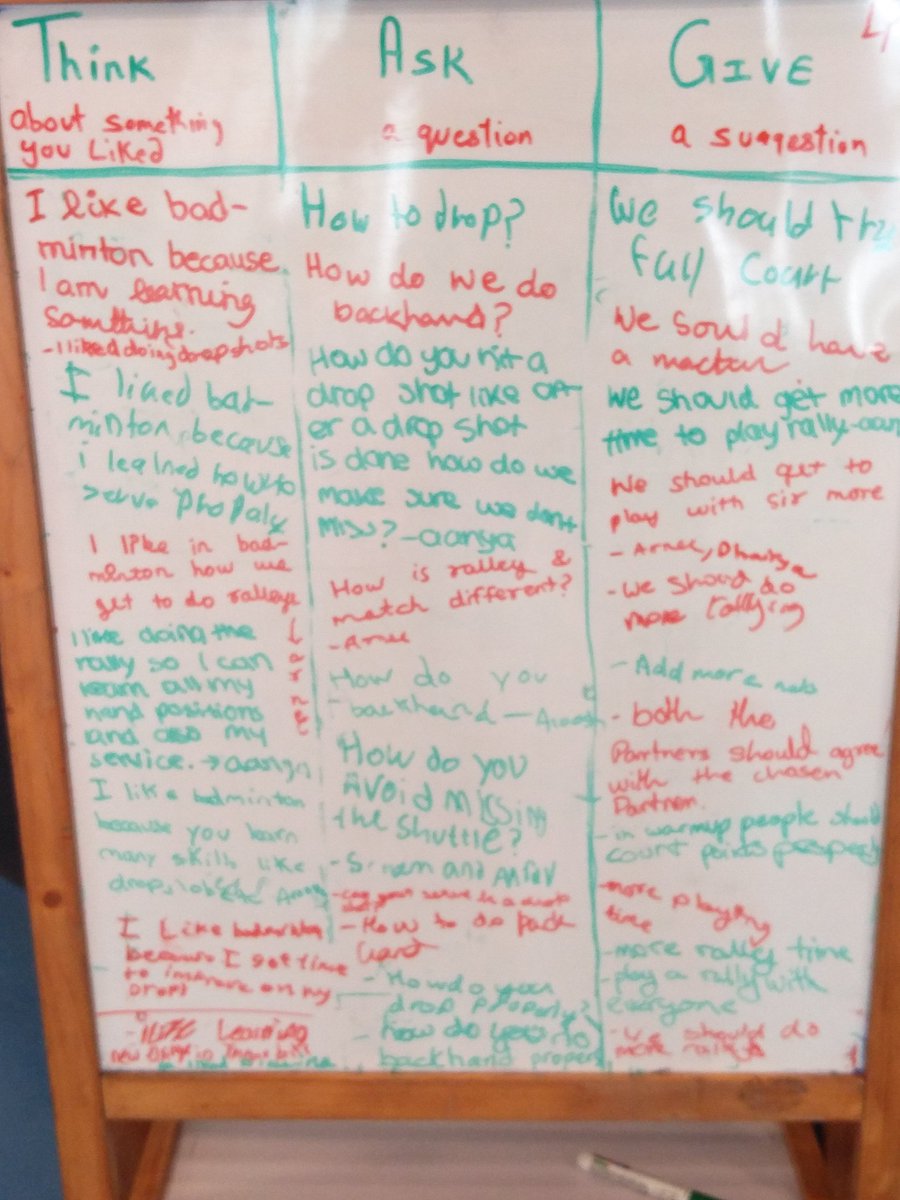 THINK
about something
you Liked
I like bad-
minton because
I am learning
somthing.
- I liked doing drop shots
I liked bad-
minton, because
i learned how to
serve
I like in bad-
minton how we
get to do
I like doing the
rally so I can
learn all my
hand positions
and also my
service. →
I like badminton
because you learn
many skills like
drops,
I Like badminton
because I get time
to improve on my
drops
Learning
ASK
a question
How to drop?
How do we do
backhand?
How do you hit a
drop shot like aft-
er a drop shot
is done how do we
make sure we dont
miss? - aanya
How is ralley &
match different?
- Arnee
How do you
backhand -
How do you
AVOID MISSING
the Shuttle?
and
- How to do back
- How do you
drop properly?
- how do you do
backhand
GIVE
a suggestion
We should try
full court
We sould have
a
we should get more
time to play rally-
We should get to
play with sir more
- Arnee,
- we should do
more rallying
- Add more
- both the
Partners should agree
with the chosen
Partner.
- in warmup people should
court points
- more playing
time
- more rally time
- play a rally with
everyone
- we should do
more